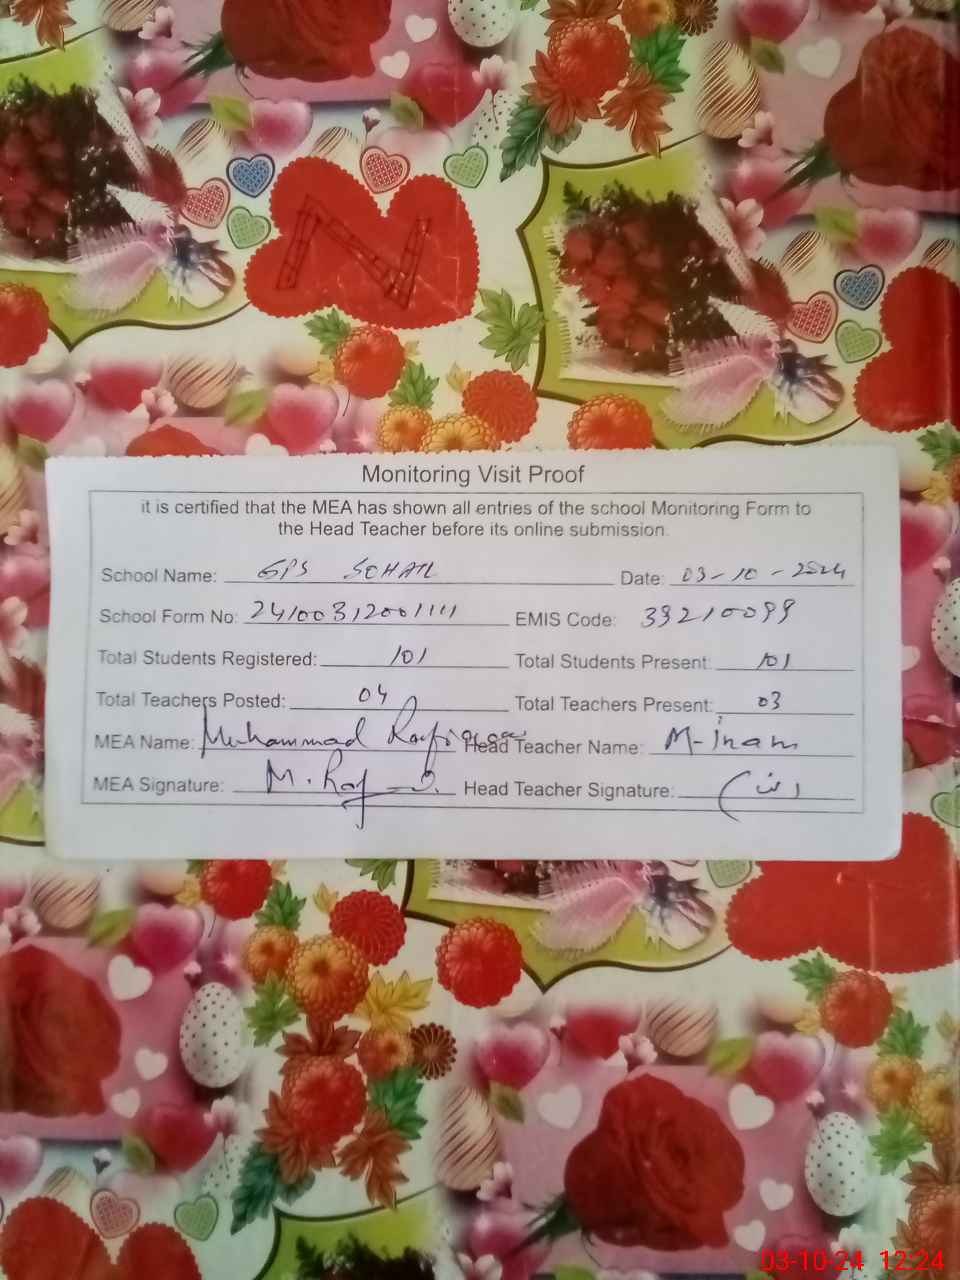 N
Monitoring Visit Proof
it is certified that the MEA has shown all entries of the school Monitoring Form to
the Head Teacher before its online submission.
School Name: GPS SOHATL Date: 03-10-2024
School Form No: 24100312001111 EMIS Code: 39210099
Total Students Registered: 101 Total Students Present: 101
Total Teachers Posted: 04 Total Teachers Present: 03
MEA Name: Muhammad Head Teacher Name: M-Inam
MEA Signature: M. Head Teacher Signature:
03-10-24 12:24